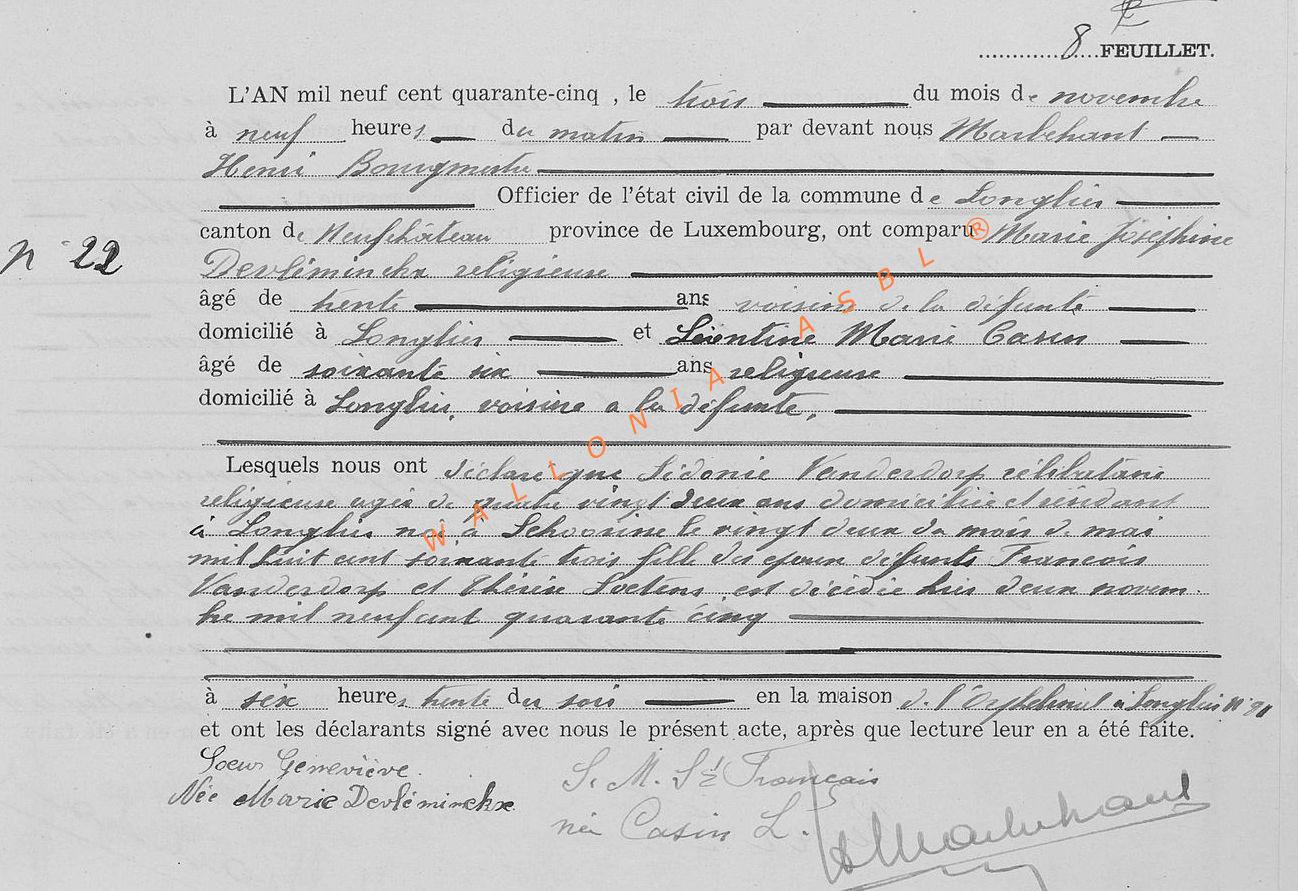 8 FEUILLET.
L'AN mil neuf cent quarante-cinq , le trois du mois de novembre
à neuf heures du matin par devant nous Marbehant
Henri Bourgmestre
Officier de l'état civil de la commune de Longlier
canton de Neufchâteau province de Luxembourg, ont comparu Marie Joséphine
N° 22
Devléminckx religieuse
âgé de trente ans voisin de la défunte
domicilié à Longlier et Léontine Marie Casin
âgé de soixante six ans religieuse
domicilié à Longlier, voisine a la défunte,
Lesquels nous ont déclaré que Sidonie Vanderdorp célibataire
religieuse agée de quatre vingt deux ans domiciliée et résidant
à Longlier née à Schoorisse le vingt deux du mois de mai
mil huit cent soixante trois fille des epoux défunts François
Vanderdorp et Thérèse Soetens est décédée hier deux novem-
bre mil neuf cent quarante cinq
à six heures trente du soir en la maison de l'Orphelinat à Longlier N° 91
et ont les déclarants signé avec nous le présent acte, après que lecture leur en a été faite.
Soeur Geneviève.
Née Marie Devléminckx
S. M. St François
née Casin L.
WALLONIA ASBL ®